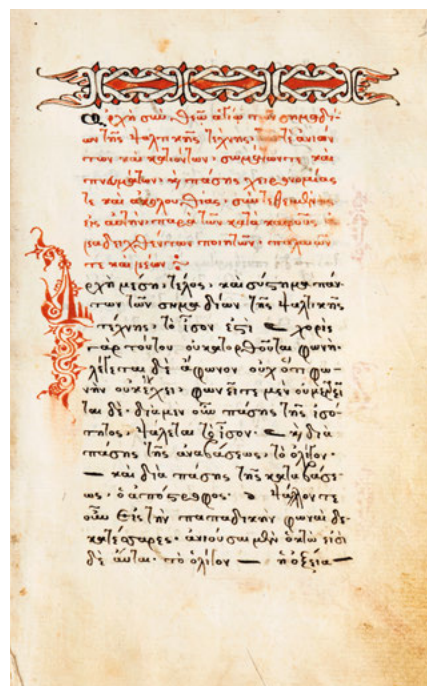 Ἀρχὴ σὺν Θεῷ ἁγίῳ τῶν σημαδί-
ων τῆς ψαλτικῆς τέχνης, τῶν τε ἀνιόν
των καὶ κατιόντων, σωμάτων τε καὶ
πνευμάτων, καὶ πάσης χειρονομίας
τε καὶ ἀκολουθίας, συντεθειμένης
εἰς αὐτὴν, παρὰ τῶν κατὰ καιροὺς ἀ-
ναδειχθέντων ποιητῶν, παλαιῶν
τε καὶ νέων
Ἀρχὴ μέση, τέλος, καὶ σύστημα πάν
των τῶν σημαδίων τῆς ψαλτικῆς
τέχνης, τὸ ἴσον ἐστὶ χορὶς
γὰρ τούτου οὐ κατορθοῦται φωνή.
λέγεται δὲ ἄφωνον οὐχ ὅτι φω-
νὴν οὐκ ἔχει, φωνεῖτε μὲν οὐ μετρεῖ
ται δέ. διὰ μὲν οὖν πάσης τῆς ἰσό-
τητος, ψάλεται τὸ ἴσον. καὶ διὰ
πάσης τῆς ἀναβάσεως, τὸ ὀλίγον.
— καὶ διὰ πάσης τῆς καταβάσε-
ως, ὁ ἀπόστροφος. ψάλλονται
οὖν εἰς τὴν παπαδικὴν φωναὶ δε-
κατέσσαρες. ἀνιοῦσαι μὲν ὀκτὼ εἰσὶ
δὲ αὗται. τὸ ὀλίγον — ἡ ὀξεία —